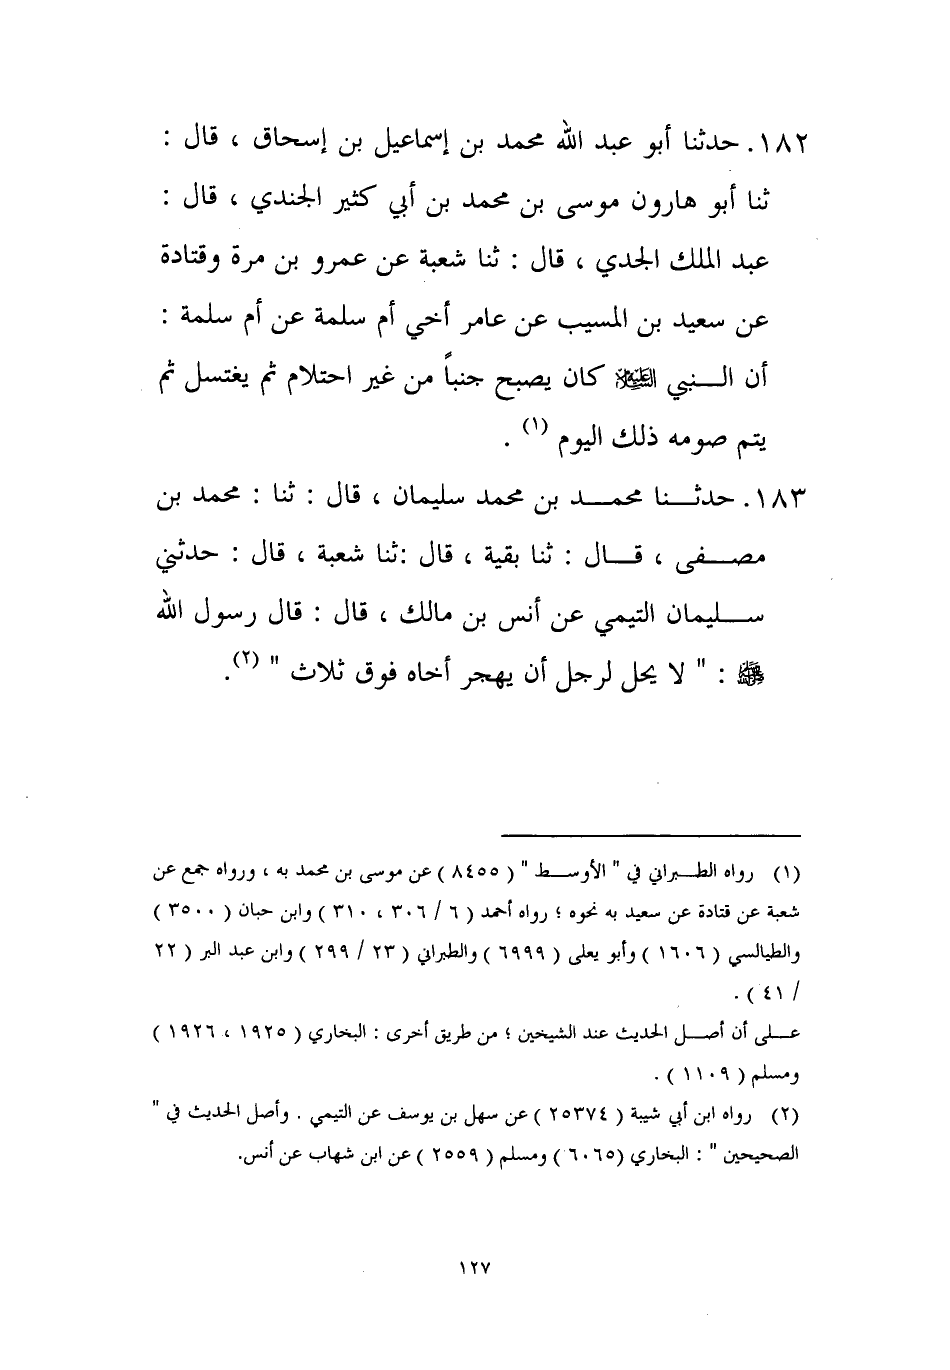 ١٨٢. حدثنا أبو عبد الله محمد بن إسماعيل بن إسحاق ، قال :
ثنا أبو هارون موسى بن محمد بن أبي كثير الجندي ، قال :
عبد الملك الجدي ، قال : ثنا شعبة عن عمرو بن مرة وقتادة
عن سعيد بن المسيب عن عامر أخي أم سلمة عن أم سلمة :
أن النبي ﷺ كان يصبح جنباً من غير احتلام ثم يغتسل ثم
يتم صومه ذلك اليوم (١) .
١٨٣. حدثنا محمد بن محمد سليمان ، قال : ثنا : محمد بن
مصفى ، قال : ثنا بقية ، قال :ثنا شعبة ، قال : حدثني
سليمان التيمي عن أنس بن مالك ، قال : قال رسول الله
ﷺ : " لا يحل لرجل أن يهجر أخاه فوق ثلاث " (٢).
(١) رواه الطبراني في " الأوسط " ( ٨٤٥٥ ) عن موسى بن محمد به ، ورواه جمع عن
شعبة عن قتادة عن سعيد به نحوه ؛ رواه أحمد ( ٦ / ٣٠٦ ، ٣١٠ ) وابن حبان ( ٣٥٠٠ )
والطيالسي ( ١٦٠٦ ) وأبو يعلى ( ٦٩٩٩ ) والطبراني ( ٢٣ / ٢٩٩ ) وابن عبد البر ( ٢٢
/ ٤١ ) .
على أن أصل الحديث عند الشيخين ؛ من طريق أخرى : البخاري ( ١٩٢٥ ، ١٩٢٦ )
ومسلم ( ١١٠٩ ) .
(٢) رواه ابن أبي شيبة ( ٢٥٣٧٤ ) عن سهل بن يوسف عن التيمي . وأصل الحديث في "
الصحيحين " : البخاري (٦٠٦٥ ) ومسلم ( ٢٥٥٩ ) عن ابن شهاب عن أنس.
١٢٧